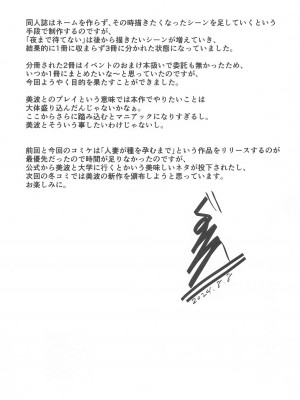 同人誌はネームを作らず、その時描きたくなったシーンを足していくという
手段で制作するのですが、
「夜まで待てない」は後から描きたいシーンが増えていき、
結果的に1冊に収まらず3冊に分かれた状態になっていました。
分冊された2冊はイベントのおまけ本扱いで委託も無かったため、
いつか1冊にまとめたいな～と思っていたのですが、
今回ようやく目的を果たすことができました。
美波とのプレイという意味では本作でやりたいことは
大体盛り込んだんじゃないかなぁ。
ここからさらに踏み込むとマニアックになりすぎるし。
美波とそういう事したいわけじゃないし。
前回と今回のコミケは「人妻が種を孕むまで」という作品をリリースするのが
最優先だったので時間が足りなかったのですが、
公式から美波と大学に行くとかいう美味しいネタが投下されたし、
次回の冬コミでは美波の新作を頒布しようと思っています。
お楽しみに。
2024.8.2